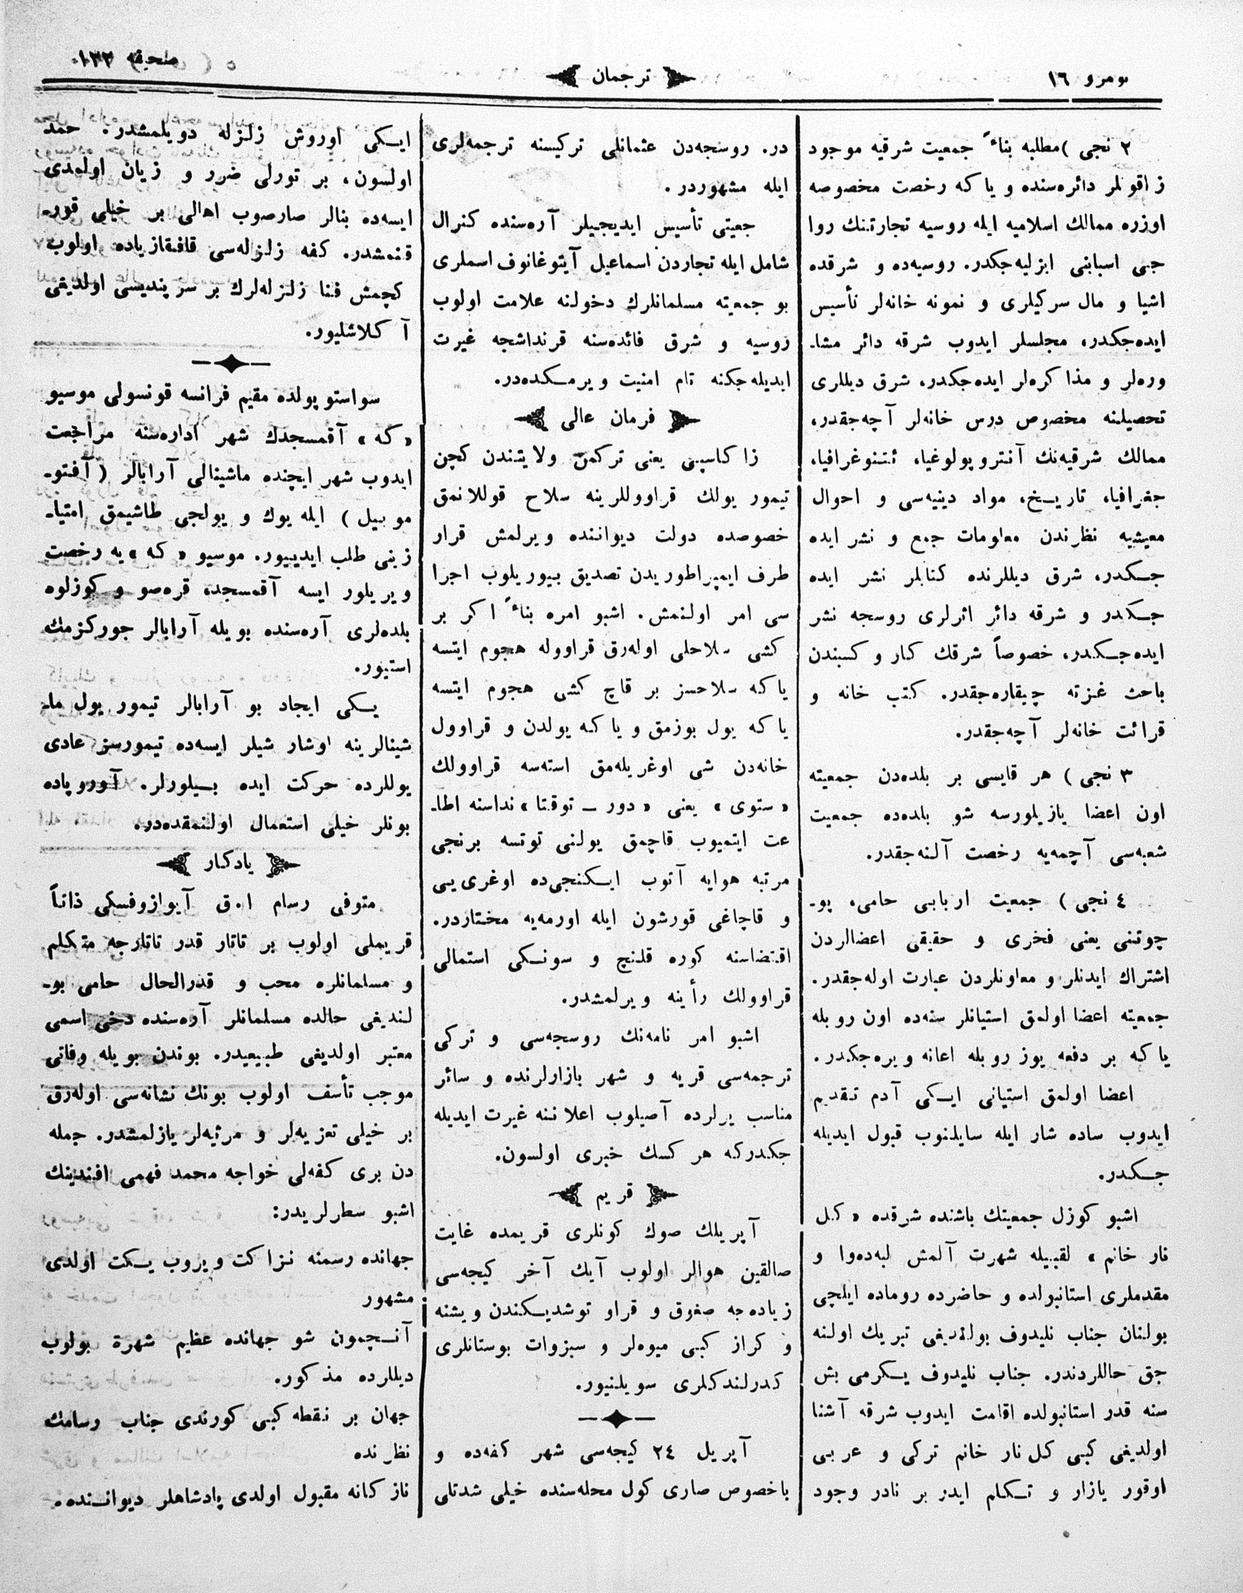 نومرو ١٦
ترجمان
صحیفه ١٣٣
٢ نجی ) مطلبه بناءً جمعیت شرقیه موجود
زاقونلر دائره‌سنده و یا که رخصت مخصوصه
اوزره ممالك اسلامیه ایله روسیه تجارتنك روا
جی اسبابنی ایزلیه‌جکدر. روسیه‌ده و شرقده
اشیا و مال سرکیلری و نمونه خانه‌لر تأسیس
ایده‌جکدر، مجلسلر ایدوب شرقه دائر مشا-
وره‌لر و مذاکره‌لر ایده‌جکدر، شرق دیللری
تحصیلنه مخصوص درس خانه‌لر آچه‌جقدر،
ممالك شرقیه‌نك آنتروپولوغیا، ئتنوغرافیا،
جغرافیا، تاریخ، مواد دینیه‌سی و احوال
معیشیه نظرندن معلومات جمع و نشر ایده
جکدر، شرق دیللرنده کتابلر نشر ایده
جکدر و شرقه دائر اثرلری روسجه نشر
ایده‌جکدر، خصوصاً شرقك کار و کسبندن
باحث غزته چیقاره‌جقدر. کتب خانه و
قرائت خانه‌لر آچه‌جقدر.
٣ نجی ) هر قایسی بر بلده‌دن جمعیته
اون اعضا یازیلورسه شو بلده‌ده جمعیت
شعبه‌سی آچمه‌یه رخصت آلنه‌جقدر.
٤ نجی ) جمعیت اربابی حامی، پو-
چوتنی یعنی فخری و حقیقی اعضالردن
اشتراك ایدنلر و معاونلردن عبارت اوله‌جقدر.
جمعیته اعضا اولمق استیانلر سنه‌ده اون روبله
یا که بر دفعه یوز روبله اعانه ویره‌جکدر.
اعضا اولمق استیانی ایکی آدم تقدیم
ایدوب ساده شار ایله سایلنوب قبول ایدیله
جکدر.
اشبو کوزل جمعیتك باشنده شرقده « کل
نار خانم » لقبیله شهرت آلمش لبه‌ده‌وا و
مقدملری استانبولده و حاضرده روماده ایلچی
بولنان جناب نلیدوف بولندیغی تبریك اولنه
جق حاللردندر. جناب نلیدوف یکرمی بش
سنه قدر استانبولده اقامت ایدوب شرقه آشنا
اولدیغی کبی کل نار خانم ترکی و عربی
اوقور یازار و تکلم ایدر بر نادر وجود
در. روسجه‌دن عثمانلی ترکیسنه ترجمه‌لری
ایله مشهوردر.
جمعیتی تأسیس ایدیجیلر آره‌سنده کنرال
شامل ایله تجاردن اسماعیل آیتوغانوف اسملری
بو جمعیته مسلمانلرك دخولنه علامت اولوب
روسیه و شرق فائده‌سنه قرنداشجه غیرت
ایدیله‌جکنه تام امنیت ویرمکده‌در.
فرمان عالی
زاکاسپی یعنی ترکمن ولایتندن کچن
تیمور یولك قراووللرینه سلاح قوللانمق
خصوصده دولت دیواننده ویرلمش قرار
طرف ایمپراطوریدن تصدیق بیوریلوب اجرا
سی امر اولنمش. اشبو امره بناءً اکر بر
کشی سلاحلی اوله‌رق قراووله هجوم ایتسه
یا که سلاحسز بر قاچ کشی هجوم ایتسه
یا که یول بوزمق و یا که یولدن و قراوول
خانه‌دن شی اوغریله‌مق استه‌سه قراوولك
« ستوی » یعنی « دور – توقتا » نداسنه اطا-
عت ایتمیوب قاچمق یولنی توتسه برنجی
مرتبه هوایه آتوب ایکنجی‌ده اوغری‌یی
و قاچاغی قورشون ایله اورمه‌یه مختاردر.
اقتضاسنه کوره قلنچ و سونکی استمالی
قراوولك رأینه ویرلمشدر.
اشبو امر نامه‌نك روسجه‌سی و ترکی
ترجمه‌سی قریه و شهر بازارلرنده و سائر
مناسب یرلرده آصیلوب اعلاننه غیرت ایدیله
جکدرکه هر کسك خبری اولسون.
قریم
آپریلك صوك کونلری قریمده غایت
صالقین هوالر اولوب آیك آخر کیجه‌سی
زیاده‌جه صغوق و قراو توشدیکندن ویشنه
و کراز کبی میوه‌لر و سبزوات بوستانلری
کدرلندکلری سویلنیور.
آپریل ٢٤ کیجه‌سی شهر کفه‌ده و
باخصوص صاری کول محله‌سنده خیلی شدتلی
ایکی اوروش زلزله دویلمشدر. حمد
اولسون، بر تورلی ضرر و زیان اولمدی
ایسه‌ده بنالر صارصوب اهالی بر خیلی قور-
قنمشدر. کفه زلزله‌سی قافقازیاده اولوب
کچمش فنا زلزله‌لرك بر سریندیسی اولدیغی
آکلاشلیور.
سواستوپولده مقیم فرانسه قونسولی موسیو
« که » آقمسجدك شهر اداره‌سنه مراجعت
ایدوب شهر ایچنده ماشینالی آرابالر ( آفتو-
موبیل ) ایله یوك و یولجی طاشیمق امتیا-
زینی طلب ایدییور. موسیو « که » یه رخصت
ویریلور ایسه آقمسجد، قره‌صو و کوزلوه
بلده‌لری آره‌سنده بویله آرابالر جورکزمك
استیور.
یکی ایجاد بو آرابالر تیمور یول ما-
شینالرینه اوشار شیلر ایسه‌ده تیمورسز عادی
یوللرده حرکت ایده بیلورلر. آوروپاده
بونلر خیلی استعمال اولنمقده‌در.
یادکار
متوفی رسام ا.ق آیوازوفسکی ذاتاً
قریملی اولوب بر تاتار قدر تاتارجه متکلم
و مسلمانلره محب و قدرالحال حامی بو-
لندیغی حالده مسلمانلر آره‌سنده دخی اسمی
معتبر اولدیغی طبیعیدر. بوندن بویله وفاتی
موجب تأسف اولوب بونك نشانه‌سی اوله‌رق
بر خیلی تعزیه‌لر و مرثیه‌لر یازلمشدر. جمله
دن بری کفه‌لی خواجه محمد فهمی افندینك
اشبو سطرلریدر:
جهانده رسمنه نزاکت ویروب یکت اولدی
مشهور
آنچمون شو جهانده عظیم شهرة بولوب
دیللرده مذکور.
جهان بر نقطه کبی کورندی جناب رسامك
نظرنده
نازکانه مقبول اولدی پادشاهلر دیواننده.